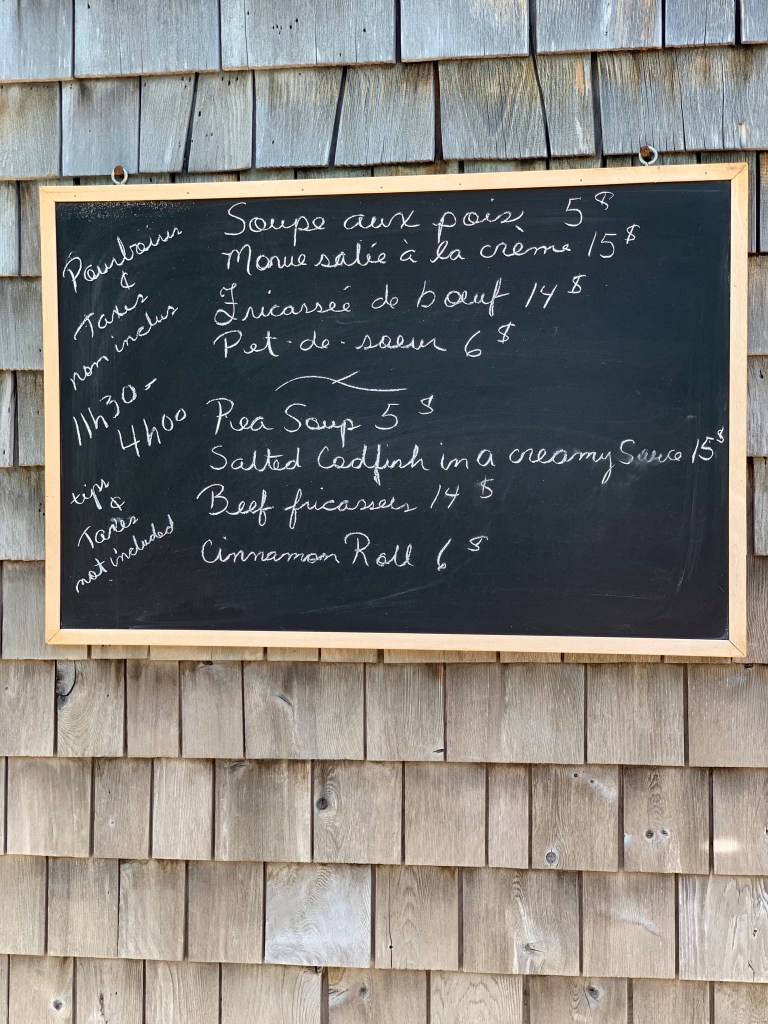 Soupe aux pois 5$
Morue salée à la crème 15$
Fricassée de bœuf 14$
Pet-de-soeur 6$
Pea Soup 5$
Salted Codfish in a creamy Sauce 15$
Beef fricassees 14$
Cinnamon Roll 6$
Pourboires
&
Taxes
non inclus
11h30-
4h00
tips
&
Taxes
not included